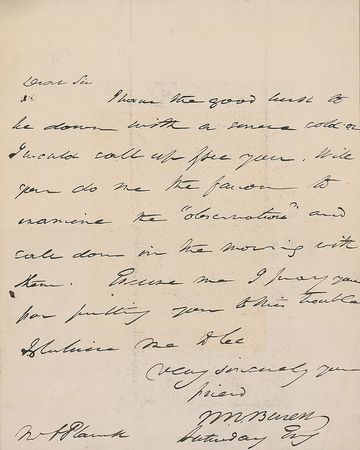 Dear Sir
I have the good luck to
be down with a severe cold or
I would call up & see you. Will
you do me the favour to
examine the "observations" and
call down in the morning with
them. Excuse me I pray you
for putting you to this trouble
& believe me to be
very sincerely your
friend
M V Buren
Saturday Evg
Mr